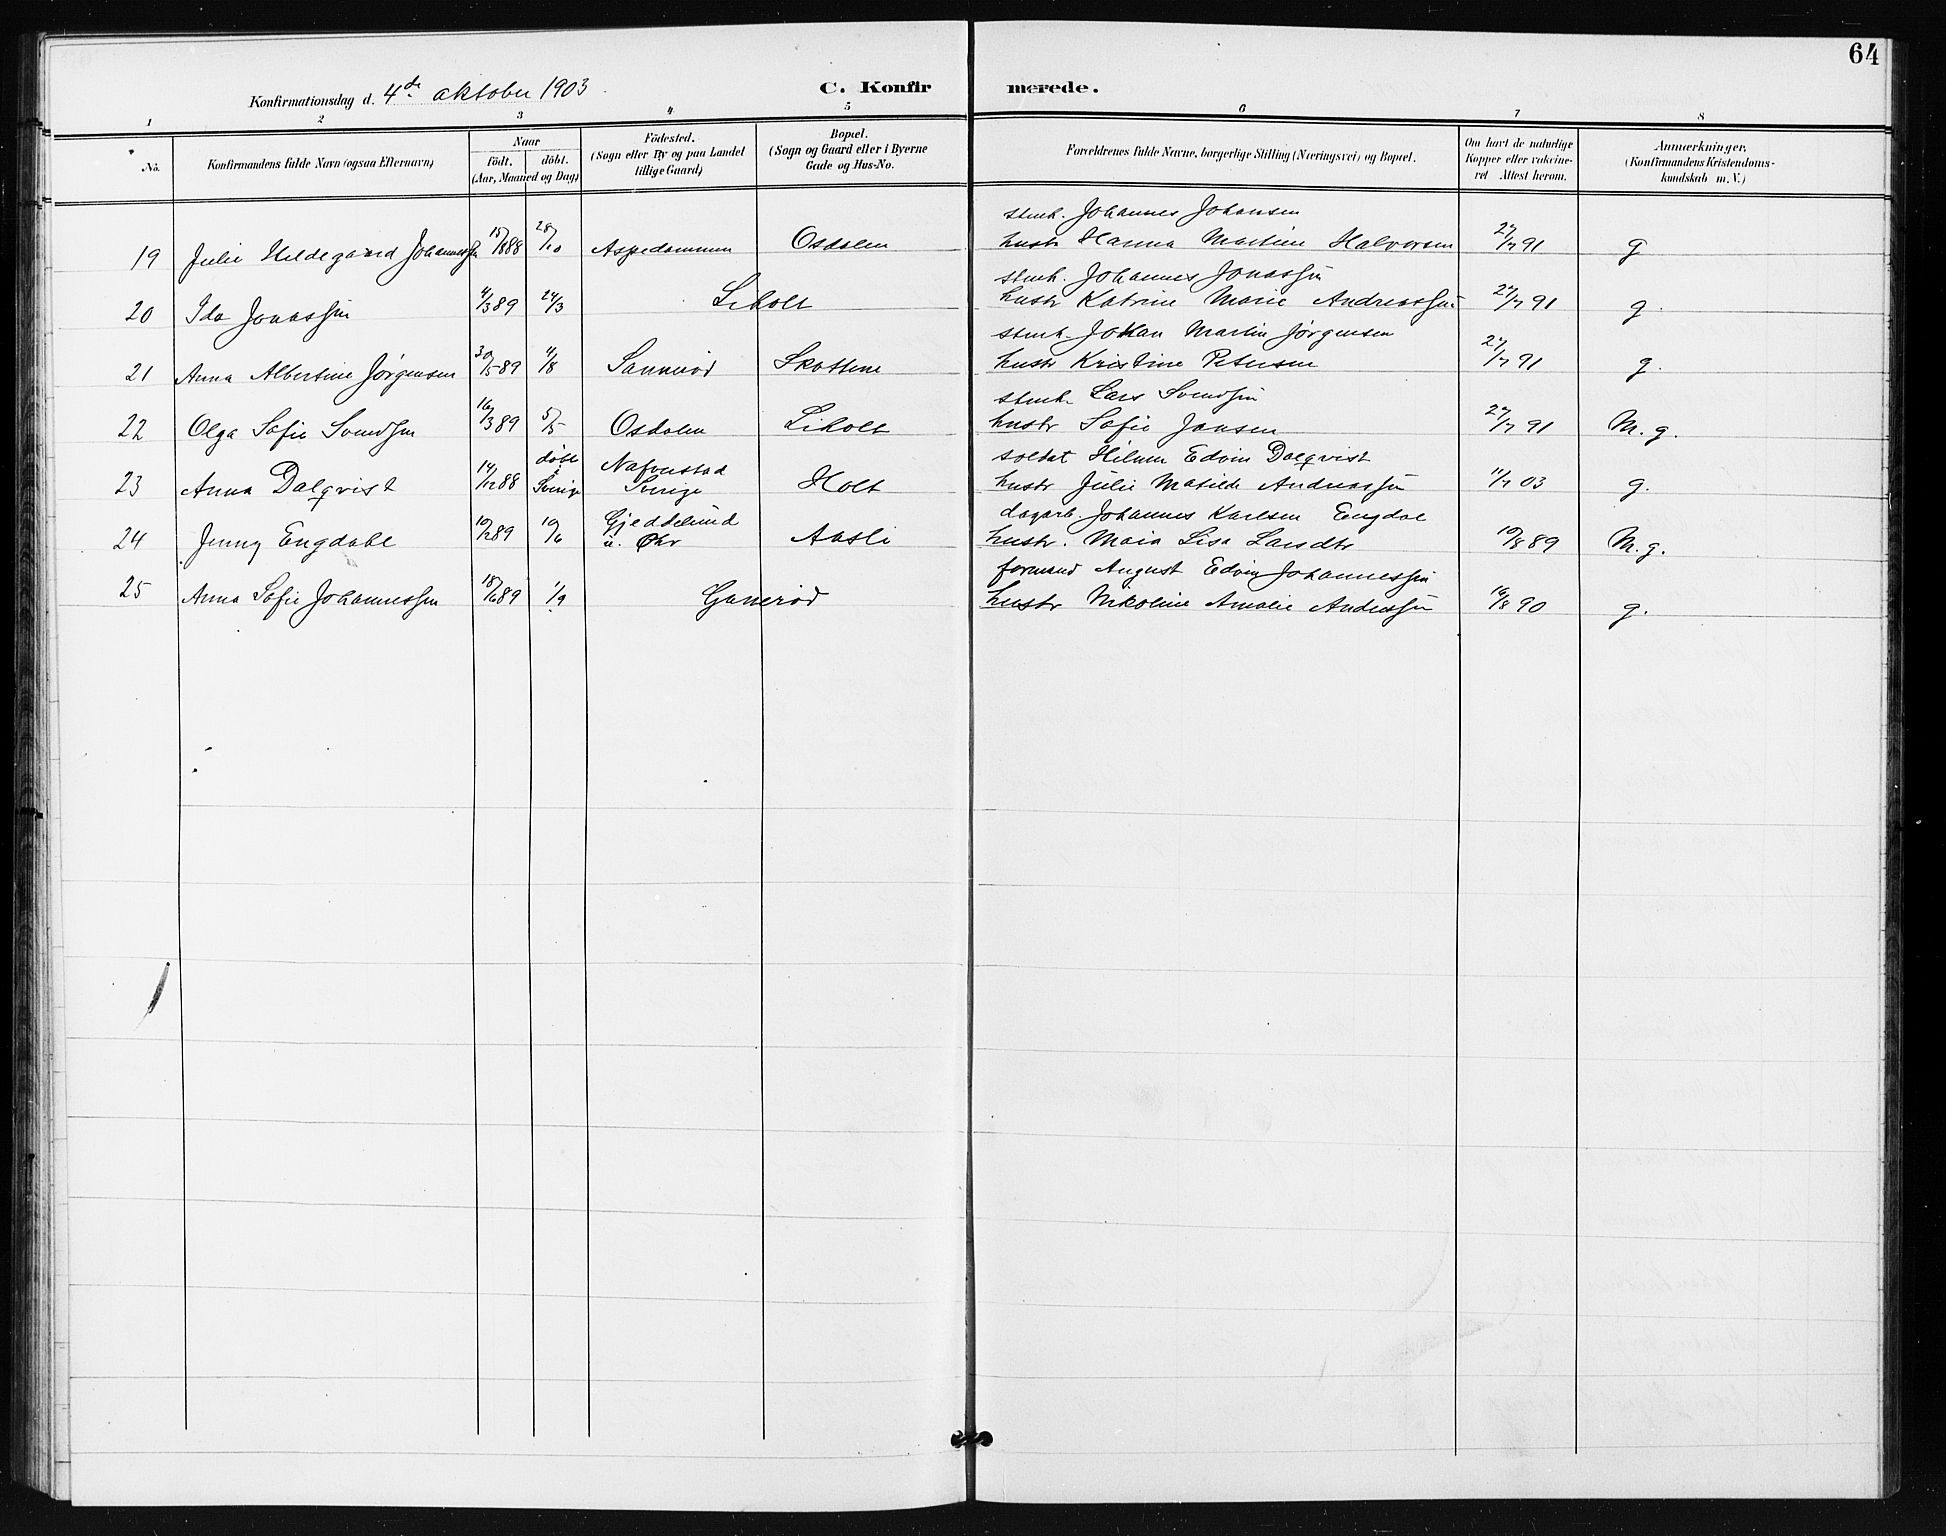 64
Konfirmationsdag d. 4de oktober 1903. C. Konfirmerede.
1 2 3 4 5 6 7 8
No. Konfirmandens fulde Navn (ogsaa Efternavn) Naar født. døbt. (Aar, Maaned og Dag) Födested. (Sogn eller By og paa Landet tillige Gaard) Bopæl. (Sogn og Gaard eller i Byerne Gade og Hus-No. Forældrenes fulde Navne, borgerlige Stilling (Næringsvei) og Bopæl. Om havt de naturlige Kopper eller vakcineret Attest herom. Anmærkninger. (Konfirmandens Kristendomskundskab m. V.)
stenh. Johannes Johansen
19 Julie Hildegaard Johannessen 15/1888 28/10 Aspedammen Osdalen hustr Hanna Martine Halvorsen 27/7 91 g
stenh. Johannes Jonassen
20 Ida Jonassen 4/3 89 24/3 Liholt hustr Katrine Marie Andreassen 27/7 91 g.
stenh. Johan Martin Jørgensen
21 Anna Albertine Jørgensen 30/5 89 4/8 Sannerød Skottene hustr Kristine Petersen 27/7 91 g.
stenh. Lars Svendsen
22 Olga Sofie Svendsen 16/3 89 5/5 Osdalen Liholt hustr Sofie Jansen 27/7 91 M. g.
døbt i Nafverstad soldat Hilmer Edvin Dalqvist
23 Anna Dalqvist 14/12 88 Sverige Sverige Holt hustr Julie Matilde Andreassen 11/7 03 g.
Gjeddelund dagarb. Johannes Karlsen Engdal
24 Jenny Engdahl 10/2 89 10/6 u. Ør Aasli hustr. Maia Lisa Larsdtr 10/8 89 M. g.
formand August Edvin Johannessen
25 Anna Sofie Johannessen 18/6 89 1/9 Ganerød hustr Nikoline Amalie Andreassen 16/8 90 g.